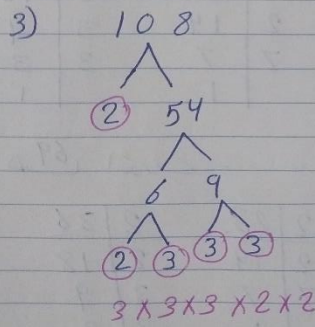 3) 108
2 54
6 9
2 3 3 3
3 x 3 x 3 x 2 x 2